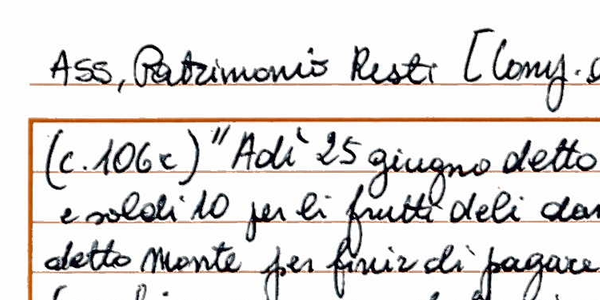 Ass, Patrimonio Resti [Comg.
(c. 106r) "Adì 25 giugno detto
e soldi 10 per li frutti deli
detto Monte per finir di pagare